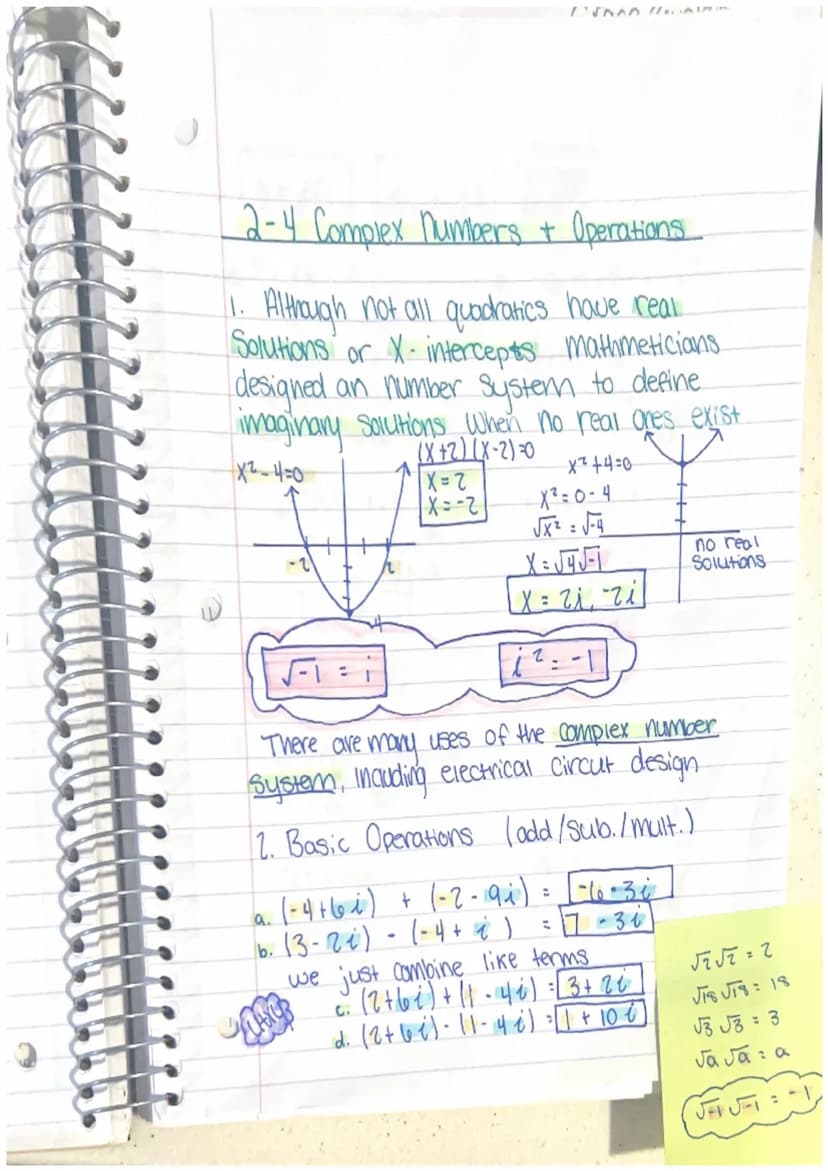 2-4 Complex Numbers + Operations
1. Although not all quadratics have real
solutions or x-intercepts mathmeticians
designed an number system to define
imaginary solutions when no real ones exist
x²-4=0
(x+2)(x-2)=0
x=2
x=-2
-2
2
-4
x²+4=0
x²=0-4
√x² = √-4
x=√4√-1
x = 2i, -2i
no real
solutions
√-1 = i
i² = -1
There are many uses of the complex number
system, incuding electrical circut design
2. Basic Operations (add/sub./mult.)
a. (-4+6i) + (-2-9i) = -6-3i
b. (3-2i) - (-4+i) = 7-3i
we just combine like terms
c. (2+6i)+(1-4i) = 3+2i
d. (2+6i)-(1-4i) = 1+10i
√2√2 = 2
√18√18 = 18
√3√3 = 3
√a√a = a
√-1√-1 = -1